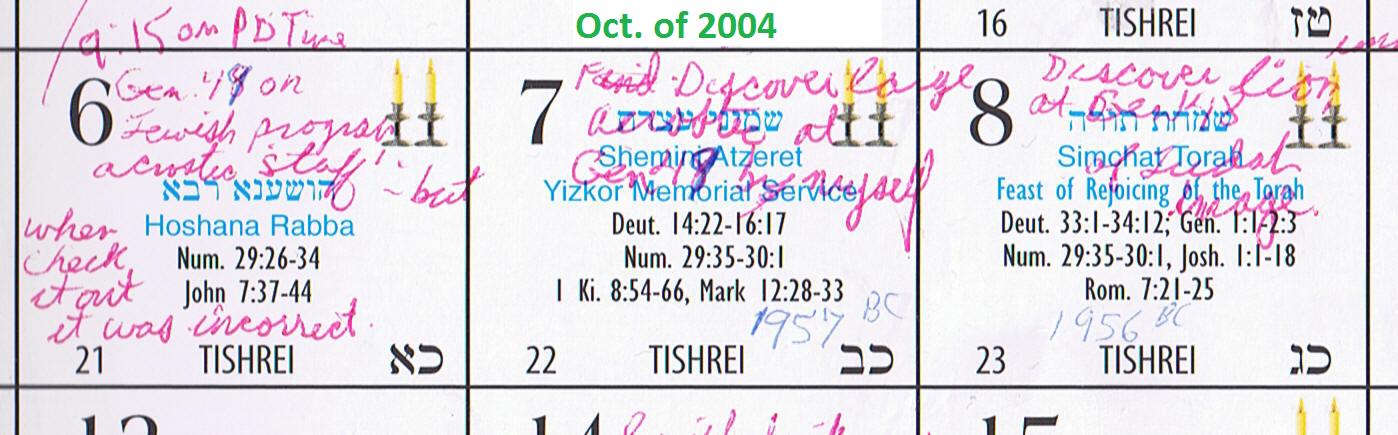 Oct. of 2004
16 TISHREI טז
9:15 on PD Time
6
Gen. 49 on
Jewish program
acrostic staff - but
הושענא רבא
Hoshana Rabba
when
check
it out
it was incorrect.
Num. 29:26-34
John 7:37-44
21 TISHREI כא
7
Find Discover large
acrostic at
שמיני עצרת
Shemini Atzeret
Gen. 49 by myself
Yizkor Memorial Service
Deut. 14:22-16:17
Num. 29:35-30:1
1 Ki. 8:54-66, Mark 12:28-33
1957 BC
22 TISHREI כב
8
Discover lion
at
שמחת תורה
Simchat Torah
of Judah
Feast of Rejoicing of the Torah
image.
Deut. 33:1-34:12; Gen. 1:1-2:3
Num. 29:35-30:1, Josh. 1:1-18
Rom. 7:21-25
1956 BC
23 TISHREI כג
13
14
15